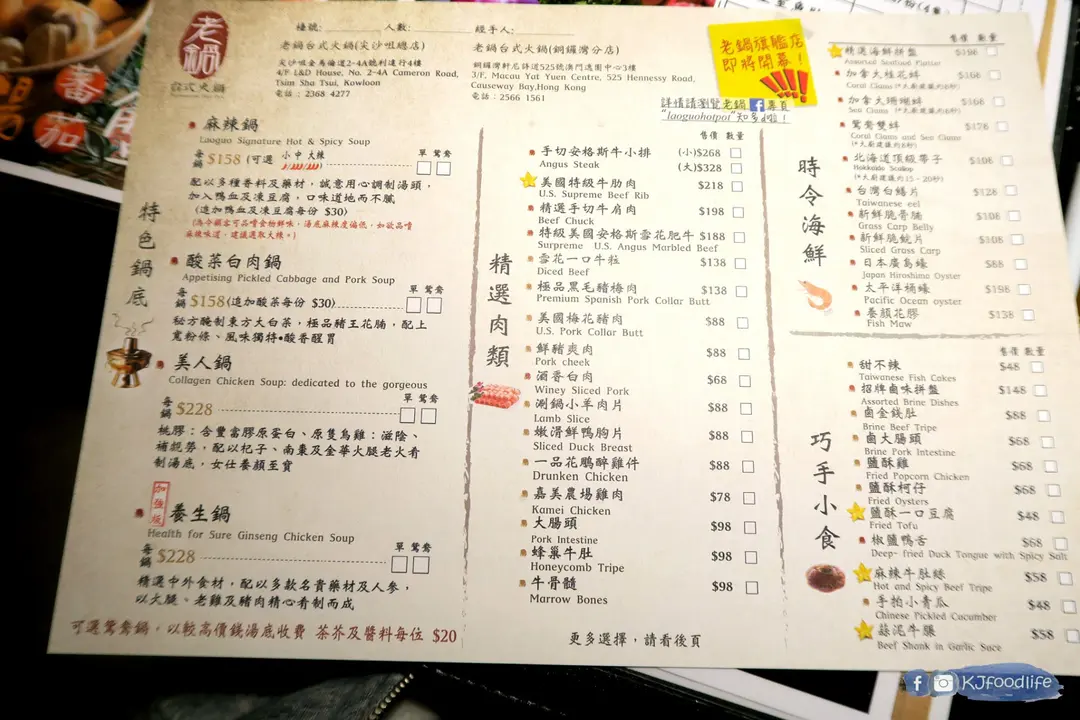 蕃
茄
老鍋
台式火鍋
檯號:
人數:
經手人:
老鍋台式火鍋(尖沙咀總店)
尖沙咀金馬倫道2-4A號利達行4樓
4/F L&D House, No. 2-4A Cameron Road,
Tsim Sha Tsui, Kowloon
電話: 2368 4277
老鍋台式火鍋(銅鑼灣分店)
銅鑼灣軒尼詩道525號澳門逸園中心3樓
3/F, Macau Yat Yuen Centre, 525 Hennessy Road,
Causeway Bay,Hong Kong
電話: 2566 1561
老鍋旗艦店
即將開幕!
詳情請瀏覽老鍋 f 專頁
"laoguohotpot"知多啲!
特色鍋底
麻辣鍋
Laoguo Signature Hot & Spicy Soup
單 鴛鴦
每鍋 $158 (可選 小 中 大辣
配以多種香料及藥材,誠意用心調制湯頭,
加入鴨血及凍豆腐,口味道地而不膩
(追加鴨血及凍豆腐每份 $30)
(為令顧客可品嚐食物鮮味,湯底麻辣度偏低,如欲品嚐
麻辣味道,建議選取大辣。)
酸菜白肉鍋
Appetising Pickled Cabbage and Pork Soup
單 鴛鴦
每鍋 $158(追加酸菜每份 $30)
秘方醃制東方大白菜,極品豬王花腩,配上
寬粉條、風味獨特•酸香醒胃
美人鍋
Collagen Chicken Soup: dedicated to the gorgeous
單 鴛鴦
每鍋 $228
桃膠:含豐富膠原蛋白、原隻烏雞:滋陰、
補親勞,配以杞子、南棗及金華火腿老火看
制湯底,女仕養顏至寶
加強版
養生鍋
Health for Sure Ginseng Chicken Soup
單 鴛鴦
每鍋 $228
精選中外食材,配以多款名貴藥材及人參,
以火腿、老雞及豬肉精心看制而成
可選鴛鴦鍋,以較高價錢湯底收費 茶芥及醬料每位 $20
精選肉類
售價 數量
手切安格斯牛小排 (小)$268
Angus Steak (大)$328
美國特級牛肋肉 $218
U.S. Supreme Beef Rib
精選手切牛肩肉 $198
Beef Chuck
特級美國安格斯雪花肥牛 $188
Surpreme U.S. Angus Marbled Beef
雪花一口牛粒 $138
Diced Beef
極品黑毛豬梅肉 $138
Premium Spanish Pork Collar Butt
美國梅花豬肉 $88
U.S. Pork Collar Butt
鮮豬爽肉 $88
Pork cheek
酒香白肉 $68
Winey Sliced Pork
涮鍋小羊肉片 $88
Lamb Slice
嫩滑鮮鴨胸片 $88
Sliced Duck Breast
一品花鵰醉雞件 $88
Drunken Chicken
嘉美農場雞肉 $78
Kamei Chicken
大腸頭 $98
Pork Intestine
蜂巢牛肚 $98
Honeycomb Tripe
牛骨髓 $98
Marrow Bones
更多選擇,請看後頁
時令海鮮
售價 數量
精選海鮮拼盤 $198
Assorted Seafood Platter
加拿大桂花蚌 $168
Coral Clams (*大廚建議灼6秒)
加拿大珊瑚蚌 $168
Sea Clams (*大廚建議灼8秒)
鴛鴦雙蚌 $176
Coral Clams and Sea Clams
(*大廚建議灼8秒)
北海道頂級帶子
Hokkaido Scallop
(*大廚建議灼15-20秒)
台灣白鱔片 $128
Taiwanese eel
新鮮脆骨腩 $108
Grass Carp Belly
新鮮脆鯇片 $108
Sliced Grass Carp
日本廣島蠔 $88
Japan Hiroshima Oyster
太平洋桶蠔 $198
Pacific Ocean oyster
養顏花膠 $138
Fish Maw
巧手小食
售價 數量
甜不辣 $48
Taiwanese Fish Cakes
招牌鹵味拼盤 $148
Assorted Brine Dishes
鹵金錢肚 $88
Brine Beef Tripe
鹵大腸頭 $68
Brine Pork Intestine
鹽酥雞 $68
Fried Popcorn Chicken
鹽酥柯仔 $68
Fried Oysters
鹽酥一口豆腐 $48
Fried Tofu
椒鹽鴨舌 $68
Deep- fried Duck Tongue with Spicy Salt
麻辣牛肚絲 $58
Hot and Spicy Beef Tripe
手拍小青瓜 $48
Chinese Pickled Cucumber
蒜泥牛𦟌 $58
Beef Shank in Garlic Suce
f KJfoodlife